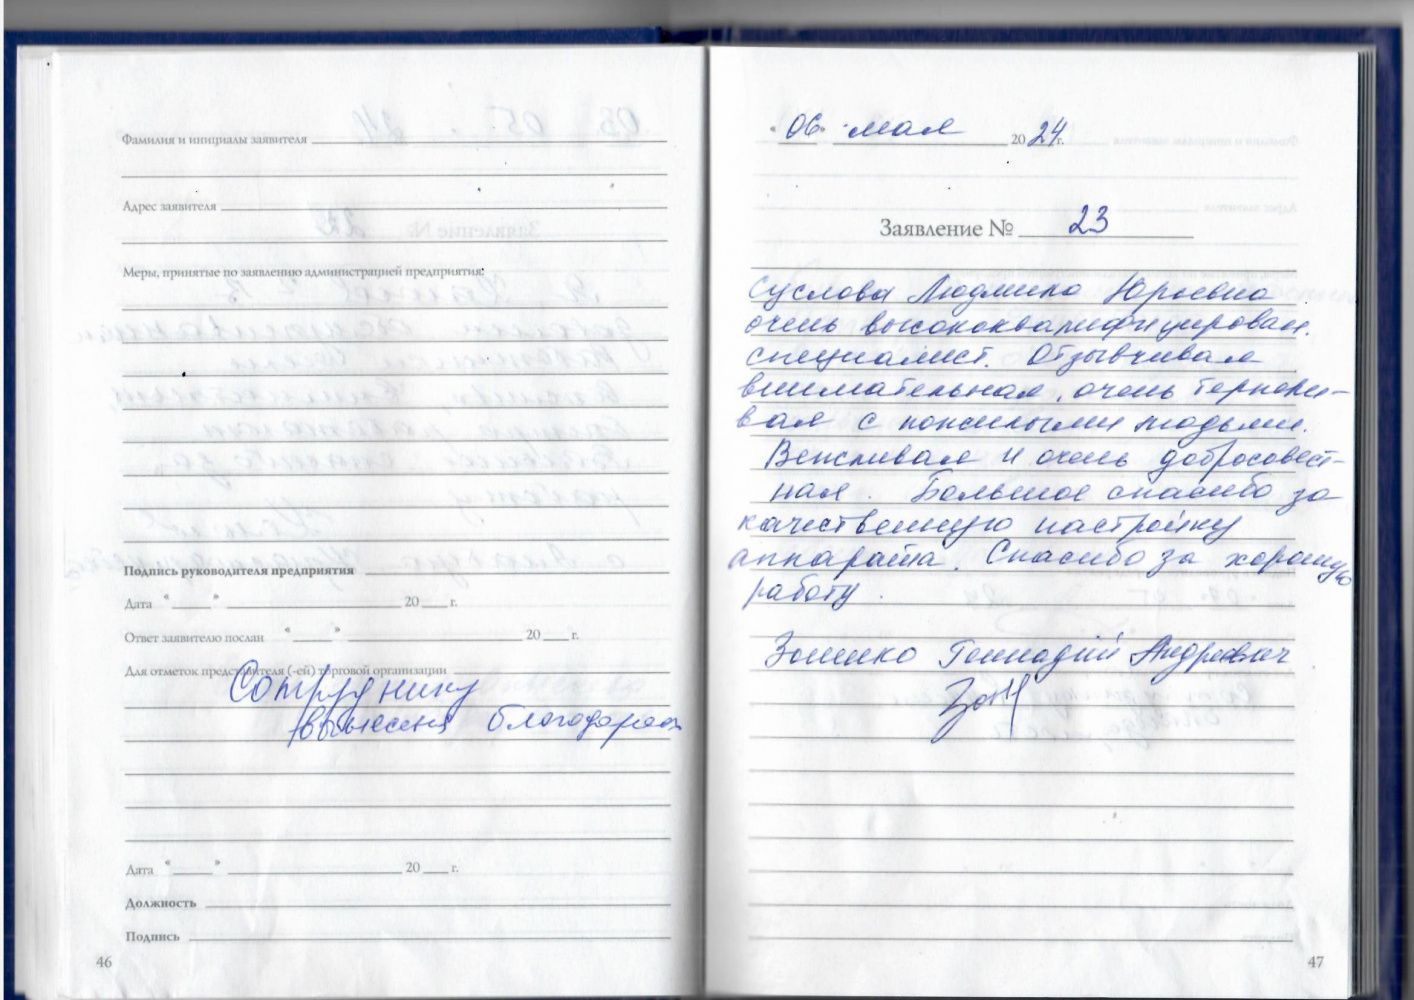 Фамилия и инициалы заявителя
Адрес заявителя
Меры, принятые по заявлению администрацией предприятия:
Подпись руководителя предприятия
Дата « » 20 г.
Ответ заявителю послан « » 20 г.
Для отметок представителя (-ей) торговой организации
Сотруднику
вынесена благодарн
Дата « » 20 г.
Должность
Подпись
46
« 06 » мая 20 24 г.
Заявление № 23
Суслова Людмила Юрьевна
очень высококвалифицирован.
специалист. Отзывчивая
внимательная, очень терпели-
вая с пожилыми людьми.
Вежливая и очень добросовест-
ная. Большое спасибо за
качественную настройку
аппарата. Спасибо за хорошую
работу.
Геннадий Андреевич
47